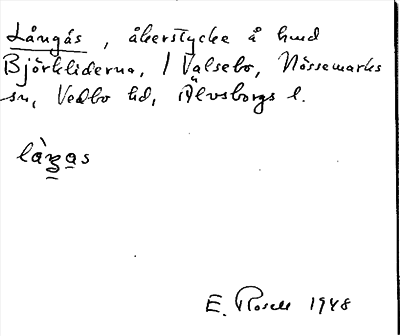 Långås, åkerstycke å hmd
Björkliderna, 1 Valsebo, Nössemarks
sn, Vedbo hd, Älvsborgs l.
làŋas
E. Rosell 1948